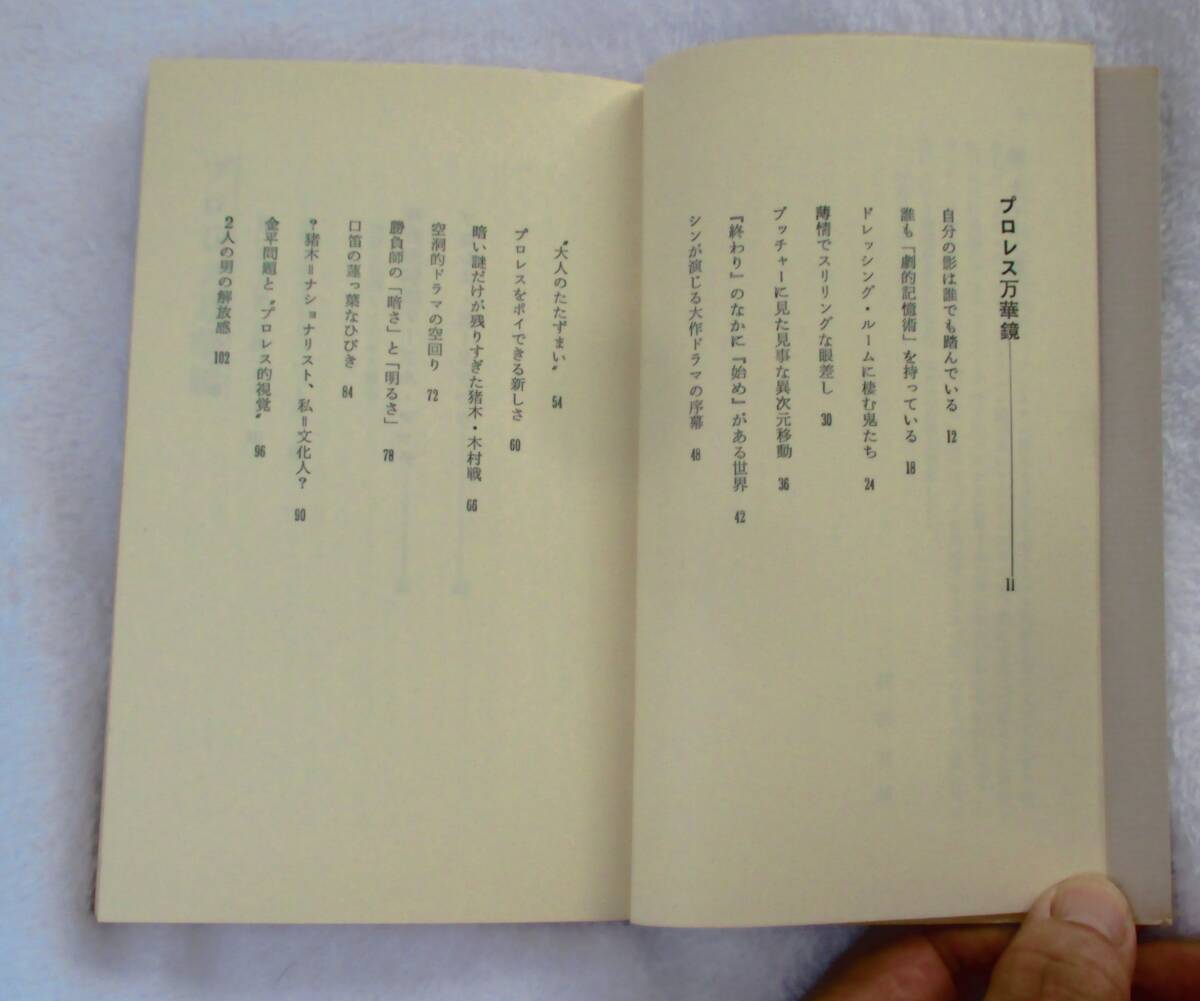 プロレス万華鏡 11
自分の影は誰でも踏んでいる 12
誰も「劇的記憶術」を持っている 18
ドレッシング・ルームに棲む鬼たち 24
薄情でスリリングな眼差し 30
ブッチャーに見た見事な異次元移動 36
『終わり』のなかに『始め』がある世界 42
シンが演じる大作ドラマの序幕 48
〝大人のたたずまい〟 54
プロレスをポイできる新しさ 60
暗い謎だけが残りすぎた猪木・木村戦 66
空洞的ドラマの空回り 72
勝負師の「暗さ」と「明るさ」 78
口笛の蓮っ葉なひびき 84
？猪木＝ナショナリスト、私＝文化人？ 90
金平問題と〝プロレス的視覚〟 96
２人の男の解放感 102